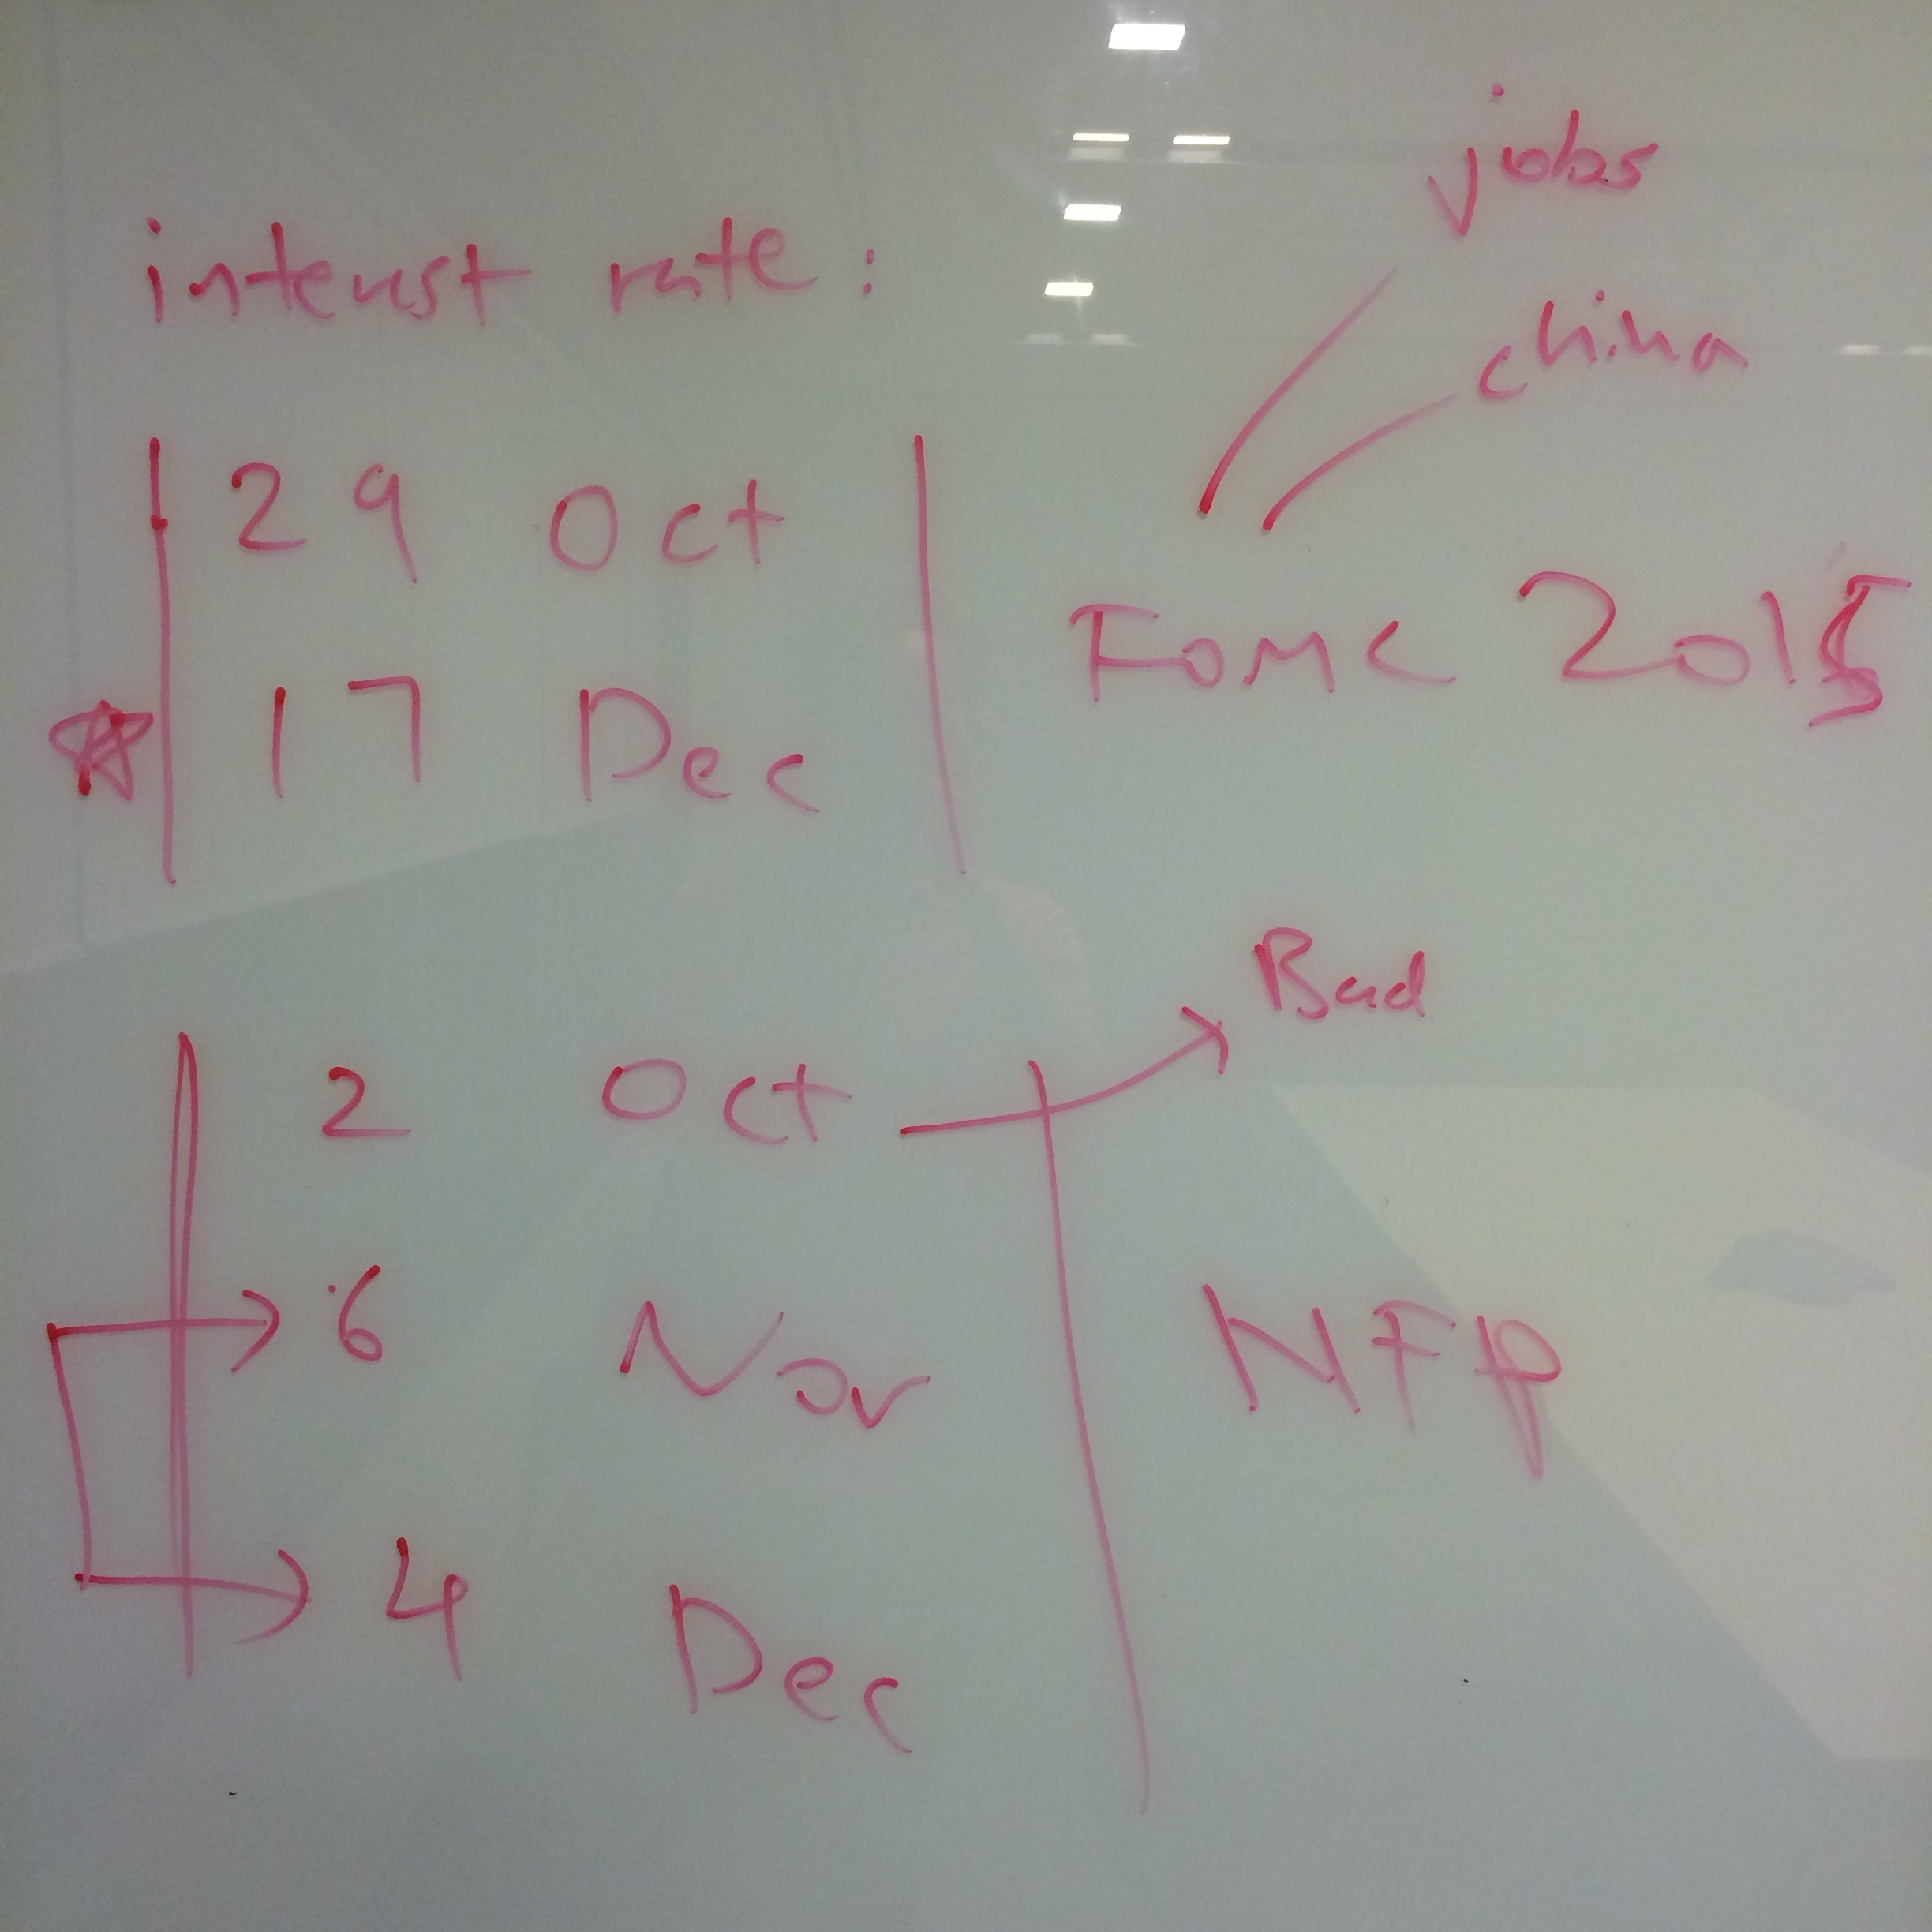 interest rate :
jobs
china
29 Oct
17 Dec
FOMC 2015
Bad
2 Oct
6 Nov
NFP
4 Dec